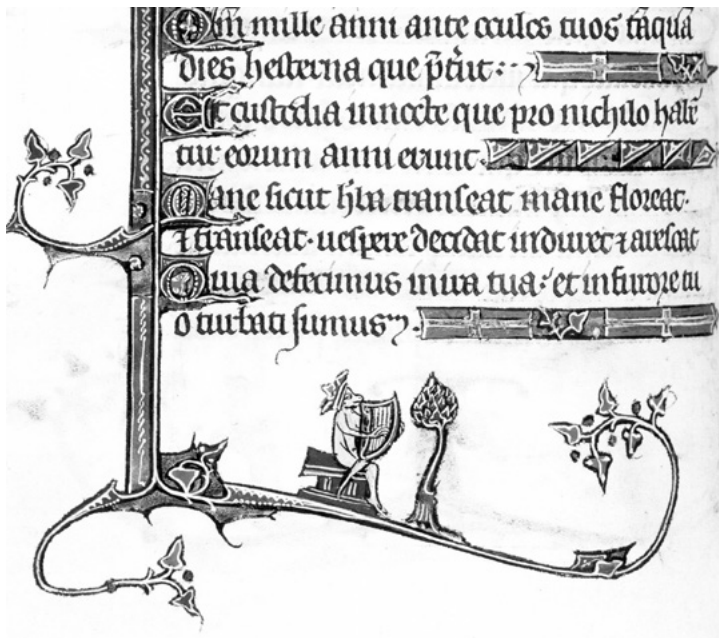 Qm̄ mille anni ante oculos tuos tāqua
dies hesterna que p̄t̄iit:
Et custodia innocte que pro nichilo habē
tur eorum anni erunt.
Mane sicut h̄ba transeat mane floreat:
⁊ transeat. uespere decidat induret ⁊ arescat
Quia defecimus inira tua: et in furore tu
o turbati sumus.